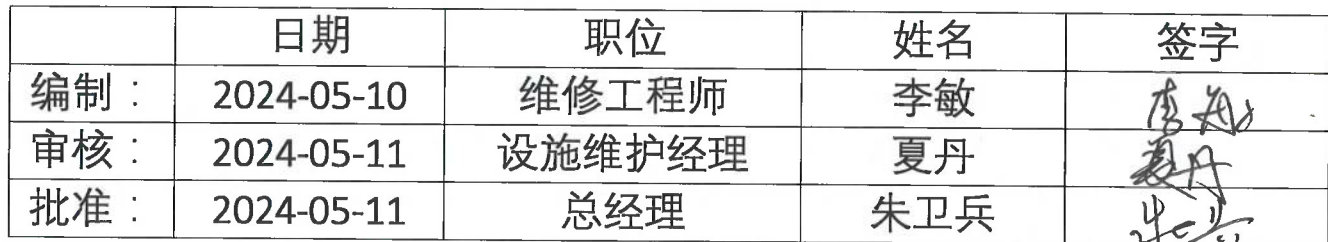 日期 职位 姓名 签字
编制： 2024-05-10 维修工程师 李敏 李敏
审核： 2024-05-11 设施维护经理 夏丹 夏丹
批准： 2024-05-11 总经理 朱卫兵